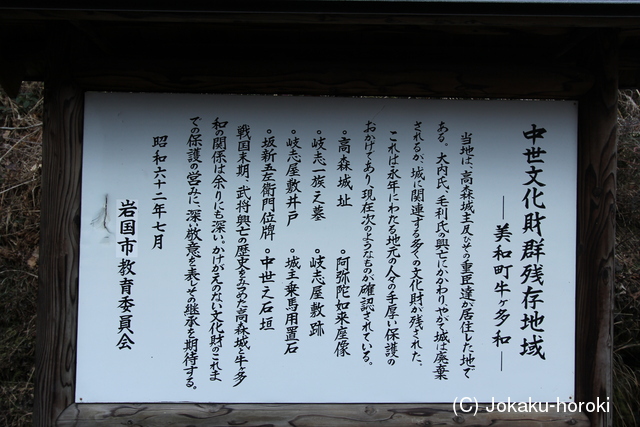 中世文化財群残存地域
―美和町牛ヶ多和―
当地は、高森城主及びその重臣達が居住した地で
ある。大内氏、毛利氏の興亡にかかわり、やがて城は廃棄
されるが、城に関連する多くの文化財が残された。
これは永年にわたる地元の人々の手厚い保護の
おかげであり、現在次のようなものが確認されている。
。高森城址 。阿弥陀如来座像
。岐志一族之墓 。岐志屋敷跡
。岐志屋敷井戸 。城主乗馬用置石
。坂新五左衛門位牌 。中世之石垣
戦国末期、武将興亡の歴史をみつめた高森城と牛ヶ多
和の関係は余りにも深い。かけがえのない文化財のこれま
での保護の営みに、深い敬意を表しその継承を期待する。
昭和六十二年七月
岩国市教育委員会
(C) Jokaku-horoki